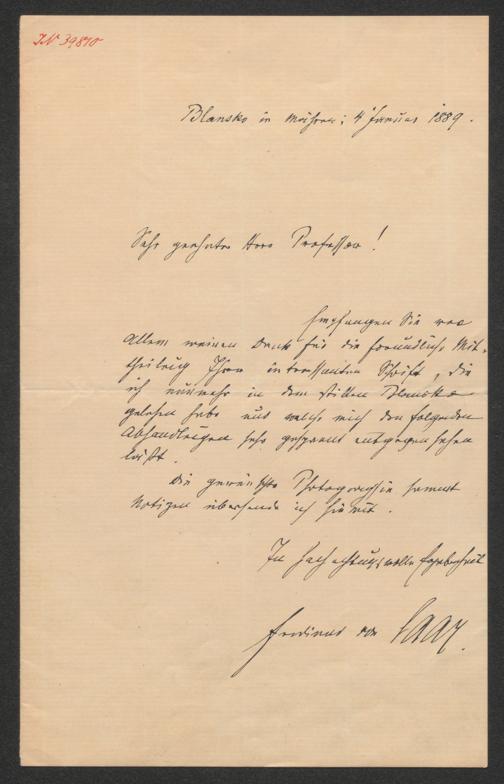 IN 39870
Blansko in Mähren; 4 Januar 1889.
Sehr geehrter Herr Professor!
Empfangen Sie vor
Allem meinen Dank für die freundliche Mit-
theilung Ihrer interessanten Schrift, die
ich nunmehr in dem stillen Blansko
gelesen habe und welche mich den folgenden
Abhandlungen sehr gespannt entgegen sehen
läßt.
Die gewünschte Photographie sammt
Notizen übersende ich hiemit.
In hochachtungsvoller Ergebenheit
Ferdinand von Saar.